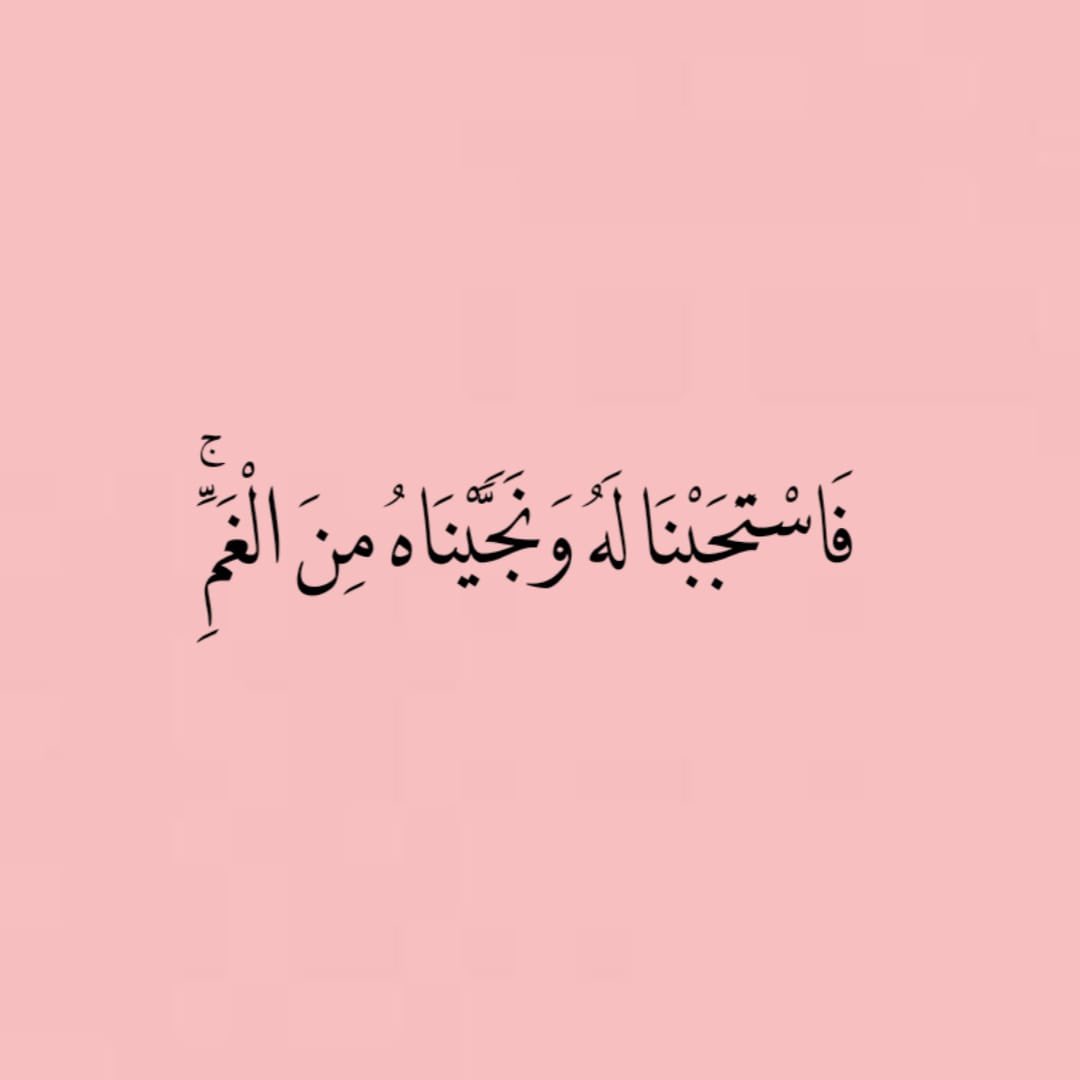 فَاسْتَجَبْنَا لَهُ وَنَجَّيْنَاهُ مِنَ الْغَمِّ ۚ